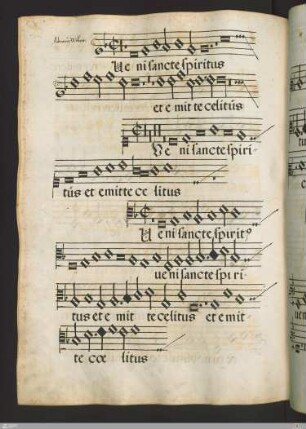 Ue ni sancte spiritus
et e mit te celitus
Ve ni sancte spiri-
tus et emitte cœ litus
Ue ni sancte spiritꝰ
ue ni sancte spi ri-
tus et e mit te celitus et e mit-
te cœ litus